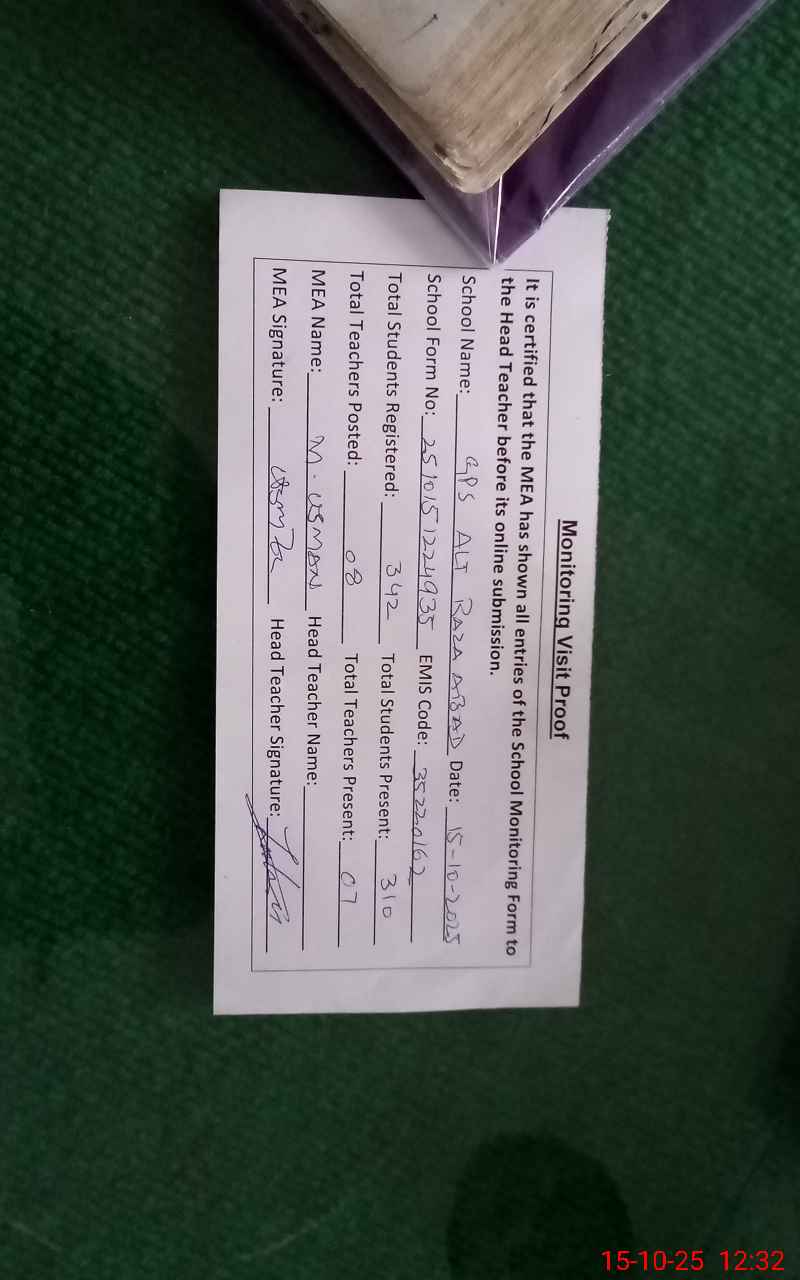 Monitoring Visit Proof
It is certified that the MEA has shown all entries of the School Monitoring Form to
the Head Teacher before its online submission.
School Name: GPS ALI RAZA ABAD Date: 15-10-2025
School Form No: 2510151224935 EMIS Code: 35220162
Total Students Registered: 342 Total Students Present: 310
Total Teachers Posted: 08 Total Teachers Present: 07
MEA Name: M. USMAN Head Teacher Name:
MEA Signature: Head Teacher Signature:
15-10-25 12:32